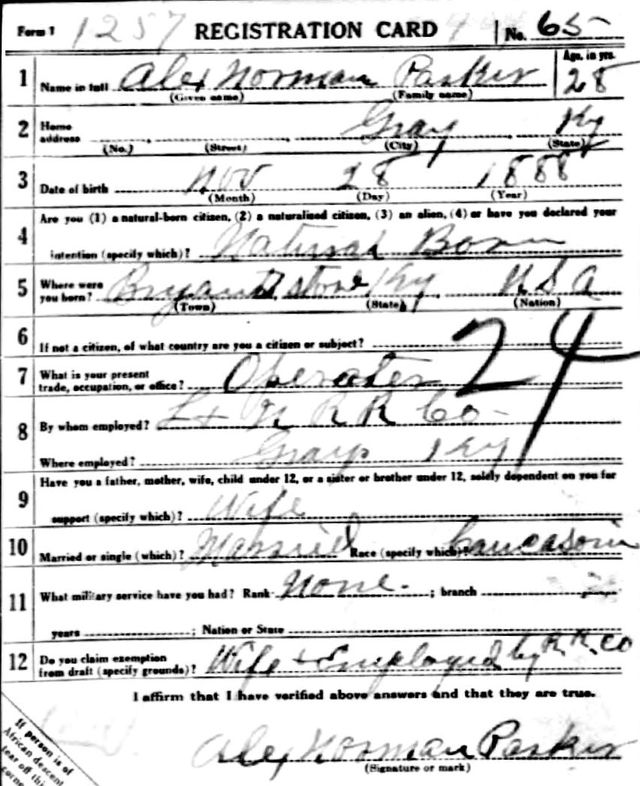 Form 1 1257 REGISTRATION CARD No. 65
1 Name in full Alex Norman Parker Age, in yrs. 28
(Given name) (Family name)
2 Home address Gray, Ky
(No.) (Street) (City) (State)
3 Date of birth Nov 28 1888
(Month) (Day) (Year)
4 Are you (1) a natural-born citizen, (2) a naturalized citizen, (3) an alien, (4) or have you declared your
intention (specify which)? Natural Born
5 Where were you born? Bryants Store Ky U S A
(Town) (State) (Nation)
6 If not a citizen, of what country are you a citizen or subject?
7 What is your present trade, occupation, or office? Operator 24
8 By whom employed? L + N R R Co -
Where employed? Grays Ky
9 Have you a father, mother, wife, child under 12, or a sister or brother under 12, solely dependent on you for
support (specify which)? Wife
10 Married or single (which)? Married Race (specify which)? Caucasoin
11 What military service have you had? Rank None - ; branch
years ; Nation or State
12 Do you claim exemption from draft (specify grounds)? Wife + Employed by R.R. Co
I affirm that I have verified above answers and that they are true.
Alex Norman Parker
(Signature or mark)
If person is of
African descent
tear off this
corner